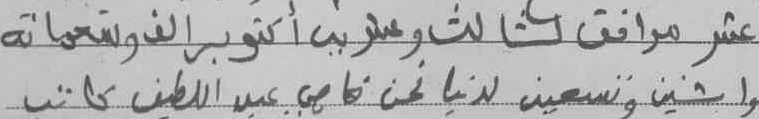 عشر موافق الثالث وعشرين أكتوبر ألف وتسعمائة
واثنين وتسعين لدينا نحن قاضي عبد اللطيف كاتب